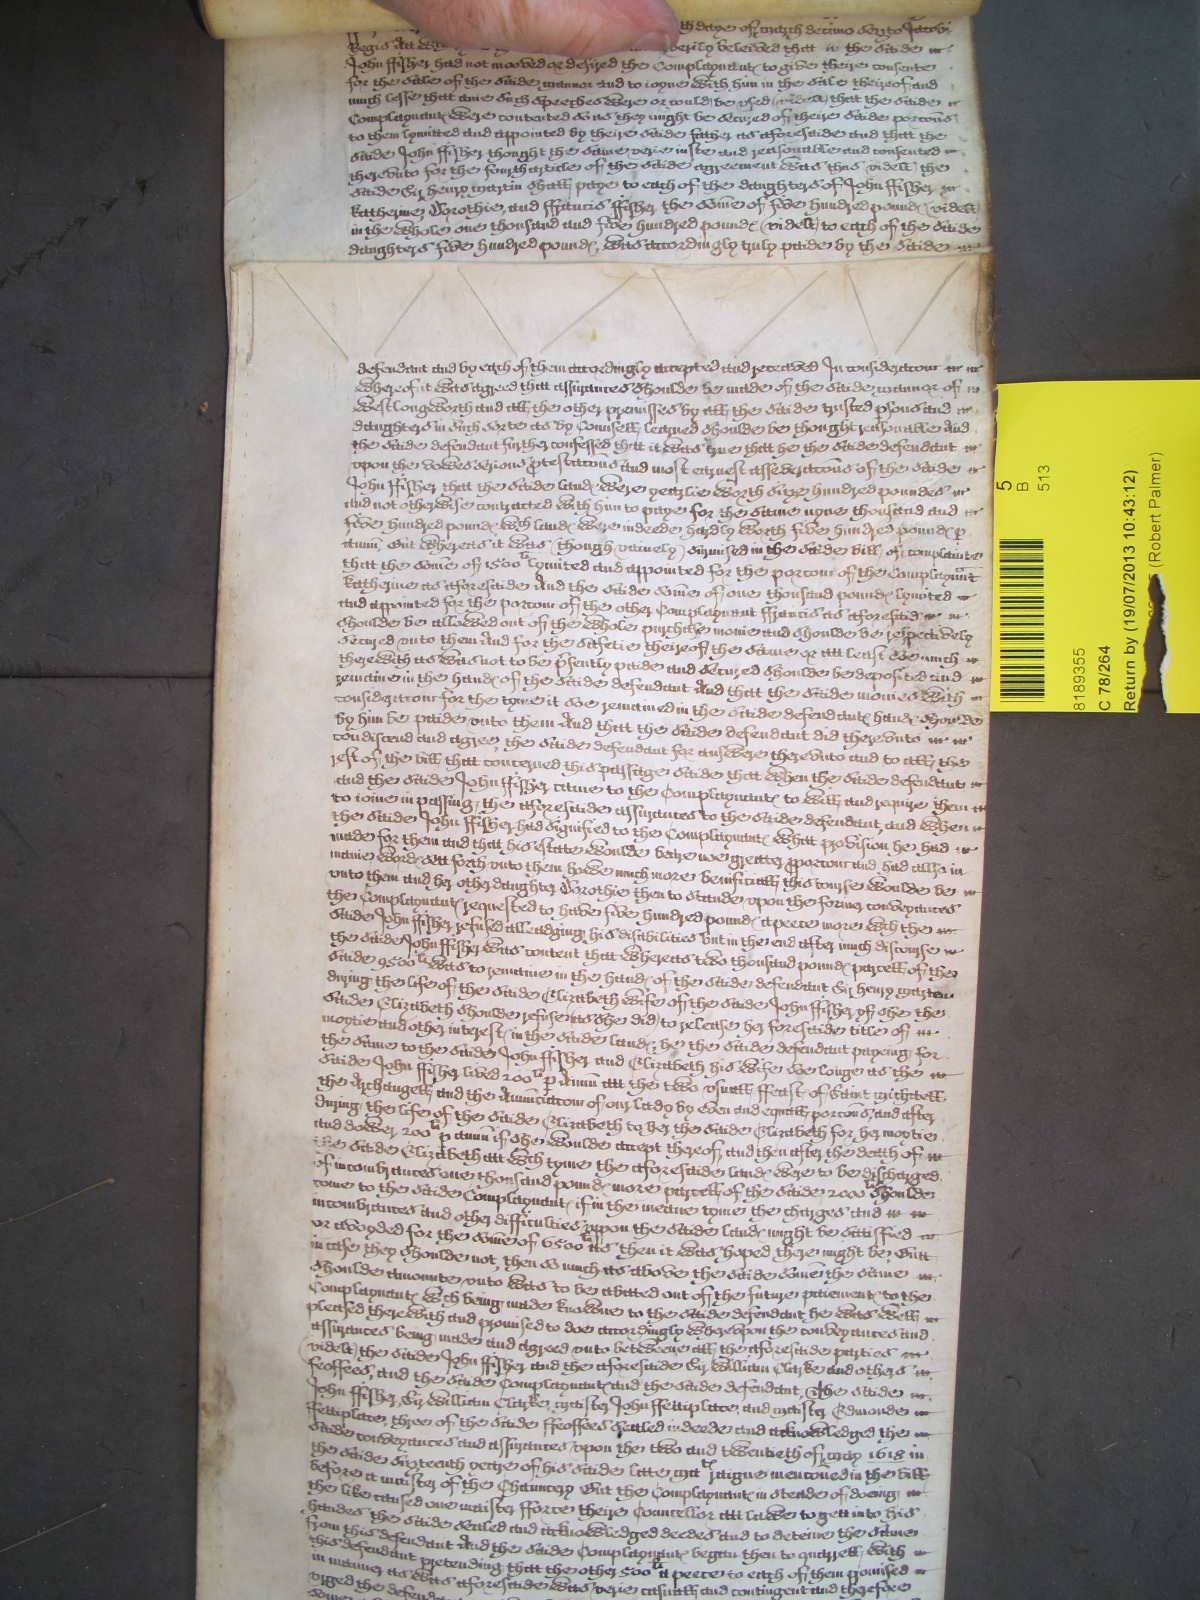 th daye of March decimo sexto Jacobi
Regis verily beleived that the saide
John ffisher had not mooved or desired the Complaynant to give theire consente
for the sale of the saide mannor and to ioyne with him in the sale theireof and
much lesse that anie such speeches were or could be vsed that the saide
Complaynant were contented so as they might be secured of theire saide porcons
to them lymitted and appointed by theire saide father as aforesaide and that the
saide John ffisher thought the same verie iuste and reasonable and consented
therevnto for the fourth article of the saide agreement was thus videlt the
saide Sir henry martin shall paye to each of the daughters of John ffisher
Katherine Dorothie, and ffrancis ffisher the some of five hundred pound (videlt)
in the whole one thousand and five hundred pound (videlt) to each of the saide
daughters five hundred pound, was accordingly truly paide by the saide
defendant and by each of them accordingly accepted and received In consideracon
whereof it was agreed that assurances shoulde be made of the saide mannor of
westlongworth and all the other premisses by all the saide trusted psons and
daughters in such sorte as by Counsell learned shoulde be thought reasonable And
the saide defendant further confessed that it was true that he the saide defendant
vpon the vowes serious ptestacons and most earnest asseveracons of the saide
John ffisher that the saide land were yearlie worth sixe hundred pounde
and not otherwise contracted with him to paye for the same nyne thousand and
five hundred pound wch land were indeede hardly worth five hundred pound p
annu, But whereas it was (though vainely) surmised in the saide bill of complainte
that the some of 1500li lymited and appointed for the porcon of the Complaynnt
Katherine as aforesaide And the saide some of one thousand pound lymited
and appointed for the porcon of the other Complaynant ffrancis as aforesaid
shoulde be allowed out of the whole purchase monie and shoulde be respectively
secured vnto them And for the safetie theireof the same or att least soe much
therewith as was not to be psently paide and secured shoulde be deposited and
remaine in the hand of the saide defendant And that the saide monies with
consideracon for the tyme it soe remained in the saide defendant hand shoulde
by him be paide vnto them And that the saide defendant did therevnto
condiscend and agree, the saide defendant for answere therevnto and to all the
rest of the bill that concerned this passage saide that when the saide defendant
and the saide John ffisher came to the Complaynant to will and require them
to ioine in passing the aforesaide assurances to the saide defendant, and when
the saide John ffisher had signified to the Complaynant what pvision he had
made for them and that his estate woulde beare noe greater pporcon and had also in
manie word sett forth vnto them howe much more beneficiall this course woulde be
vnto them and her other daughter Dorothie then to stande vpon the former conveyances
the Complaynant requested to have five hundred pound apeece more wch the
saide John ffisher refused alleadging his disabilities but in the end after much discourse
the saide John ffisher was content that whereas two thousand pound parcell of the
saide 9500li was to remaine in the hand of the saide defendant Sir henry marten
during the life of the saide Elizabeth wife of the saide John ffisher yf she the
saide Elizabeth shoulde refuse as she did to release her foresaide title of
moytie and other interest in the saide land, he the saide defendant payeing for
the same to the saide John ffisher and Elizabeth his wife soe longe as the
saide John ffisher lived 200li p Annu att the two vsuall ffeast of Saint michaell
the Archangell and the Annunciacon of our lady by even and equall porcons, and after
during the life of the saide Elizabeth to her the saide Elizabeth for her moytie
and dower 200li p annu if she woulde accept thereof, and then after the death of
the saide Elizabeth att wch tyme the aforesaide land were to be discharged
of incombrances one thousand pound more parcell of the saide 2000li shoulde
come to the saide Complaynant if in the meane tyme the charges and
incombrances and other difficulties vpon the saide land might be satisfied
or avoyded for the some of 6500li as then it was hoped there might be, But
in case they shoulde not, then so much as above the saide some the same
shoulde amounte vnto was to be abated out of the future paiement to the
Complaynant wch being made knowne to the saide defendant he was well
pleased therewith and promised to doe accordingly wherevpon the conveyances and
assurances being made and agreed vnto betweene all the aforesaide parties
(videlt) the saide John ffisher and the aforesaide Sir William Clarke and others
feoffees, and the saide Complaynant and the saide defendant, the saide
John ffisher, Sir William Clarke, maister John ffettiplace, and maister Edmonde
ffettiplace, three of the saide ffeoffees sealed indeede and acknowledged the
saide conveyances and assurances vpon the two and twentieth of may 1618 in
the saide sixteenth yeare of his saide late matie raigne mencioned in the bill
before a maister of the Chauncery But the Complaynant in steade of doeing
the like caused one maister fforce theire Councellor att lawe to gett into his
handes the saide sealed and acknowledged deedes and to deteine the same
from this defendant And the saide Complaynant began then to quarrell with
this defendant pretending that the other 500li a peece to each of them promised
in manner as was aforesaide was verie casuall and contingent and therefore
vrged the defendant
5
B
513
8189355
C 78/264
Return by (19/07/2013 10:43:12)
(Robert Palmer)